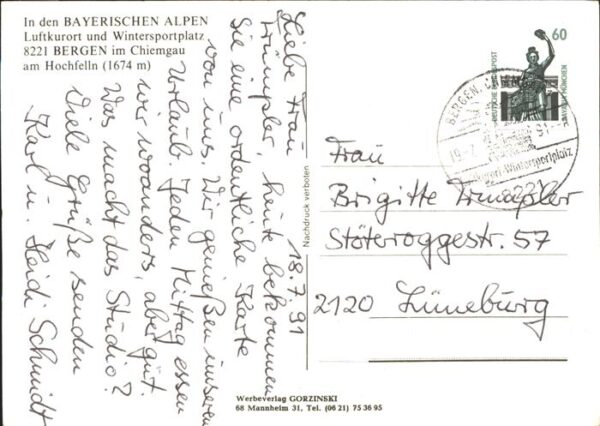 In den BAYERISCHEN ALPEN
Luftkurort und Wintersportplatz
8221 BERGEN im Chiemgau
am Hochfelln (1674 m)
18.7.91
Liebe Frau
Trümpler, heute bekommen
Sie eine ordentliche Karte
von uns. Wir genießen unseren
Urlaub. Jeden Mittag essen
wir woanders, aber gut.
Was macht das Studio?
Viele Grüße senden
Karl u. Heidi Schmidt
Nachdruck verboten
60
DEUTSCHE BUNDESPOST
BAVARIA MÜNCHEN
BERGEN, CHIEMGAU
91
Luftkurort-Wintersportplatz
8221
Frau
Brigitte Trümpler
Stöteroggestr. 57
2120 Lüneburg
Werbeverlag GORZINSKI
68 Mannheim 31, Tel. (06 21) 75 36 95